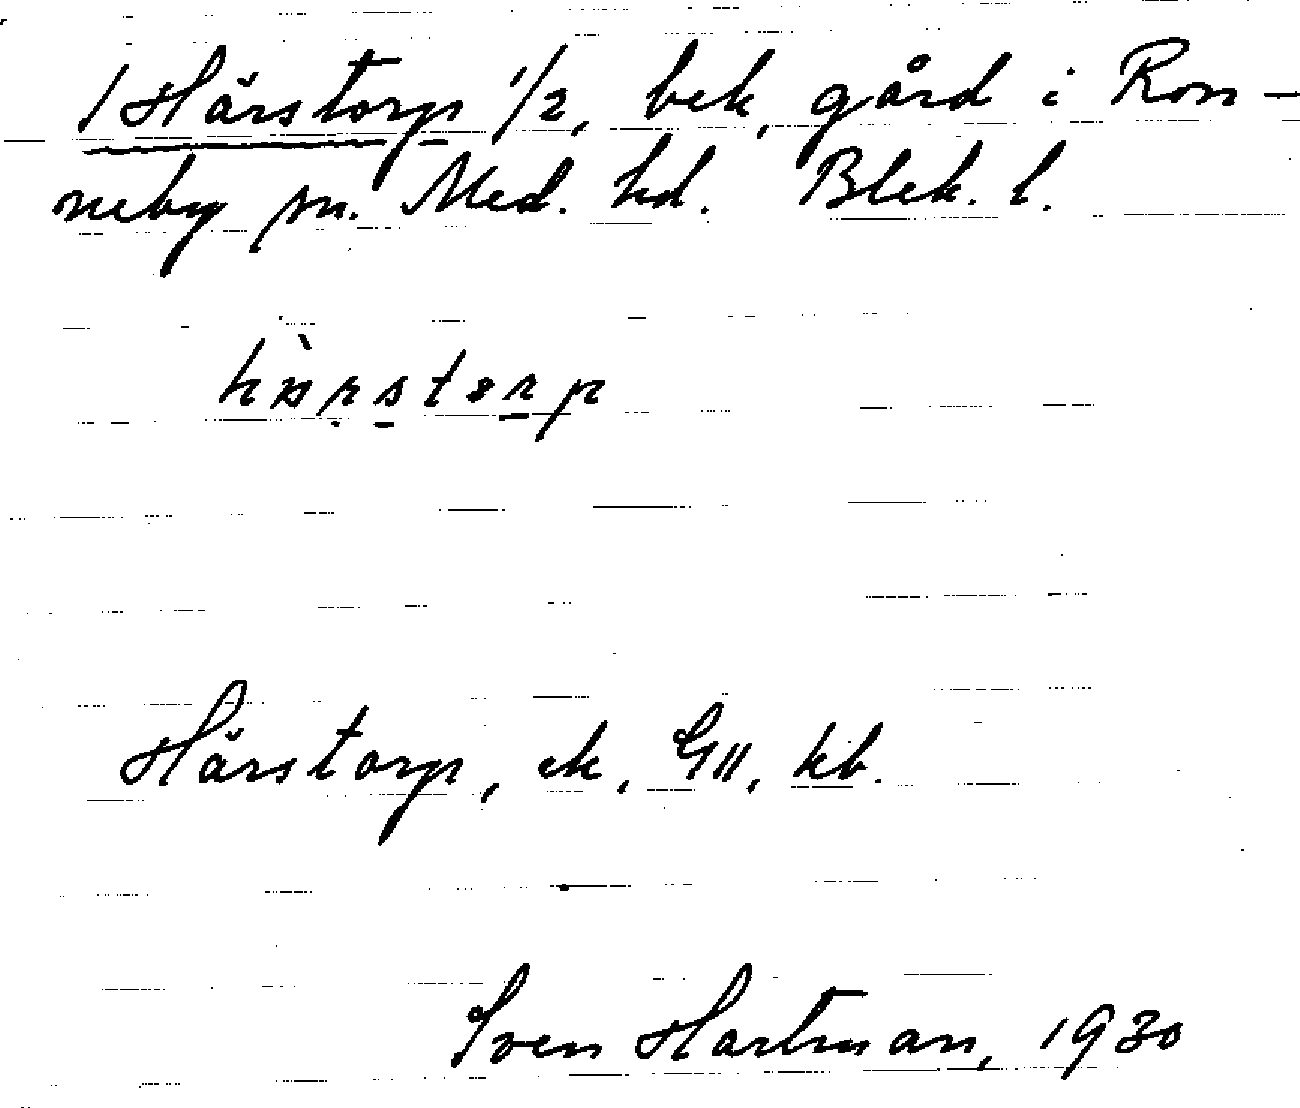 / Härstorp 1/2, bek, gård i Ron-
neby sn. Med. hd. Blek. l.
Härstorp, ek, GII, kb.
Sven Hartman, 1930